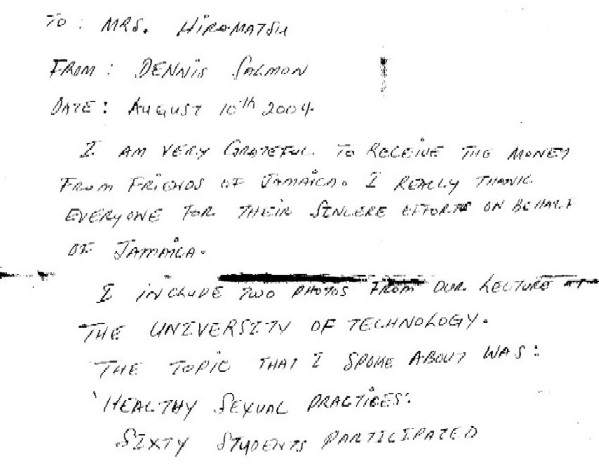 TO: MRS. HIROMATSU
FROM: DENNIS SALMON
DATE: AUGUST 10th 2004
I AM VERY GRATEFUL TO RECEIVE THE MONEY
FROM FRIENDS OF JAMAICA. I REALLY THANK
EVERYONE FOR THEIR SINCERE EFFORTS ON BEHALF
OF JAMAICA.
I INCLUDE TWO PHOTOS FROM OUR LECTURE AT
THE UNIVERSITY OF TECHNOLOGY.
THE TOPIC THAT I SPOKE ABOUT WAS:
'HEALTHY SEXUAL PRACTICES'.
SIXTY STUDENTS PARTICIPATED